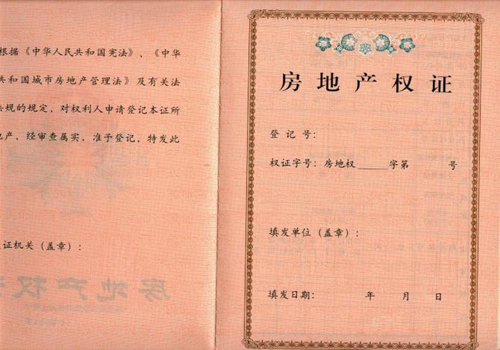 根据《中华人民共和国宪法》、《中华
共和国城市房地产管理法》及有关法
规的规定,对权利人申请登记本证所
产,经审查属实,准予登记,特发此
证机关(盖章):
房地产权证
登记号:
权证字号:房地权______字第 号
填发单位(盖章):
填发日期: 年 月 日
房地产权